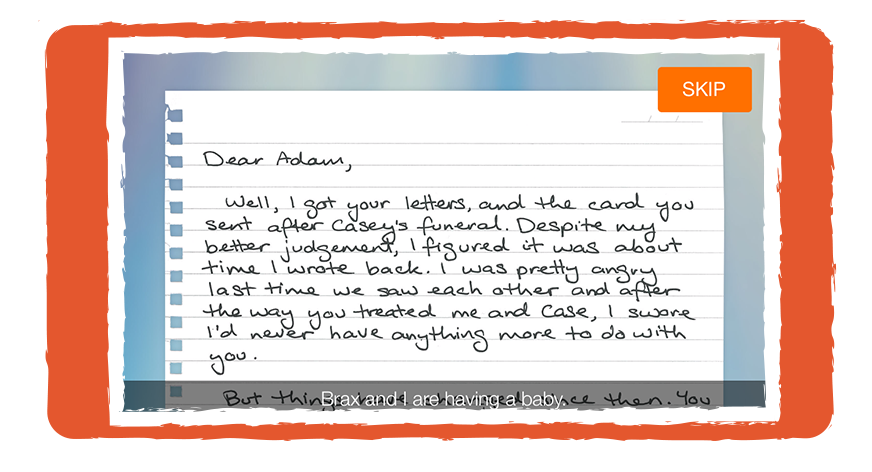 SKIP
Dear Adam,
Well, I got your letters, and the card you
sent after Casey's funeral. Despite my
better judgement, I figured it was about
time I wrote back. I was pretty angry
last time we saw each other and after
the way you treated me and Case, I swore
I'd never have anything more to do with
you.
But things then. You
Brax and I are having a baby.